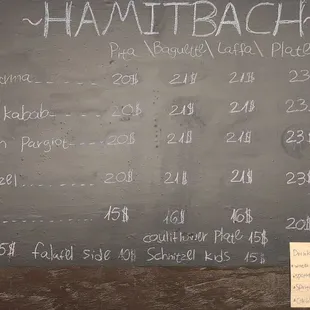 ~HAMITBACH~
Pita \Baguette\ Laffa\ Plate
20$ 21$ 21$ 23
kabab 20$ 21$ 21$ 23$
Pargiot 20$ 21$ 21$ 23$
20$ 21$ 21$ 23$
15$ 16$ 16$ 20$
cauliflower Plate 15$
5$ falafel side 10$ Schnitzel kids 15$